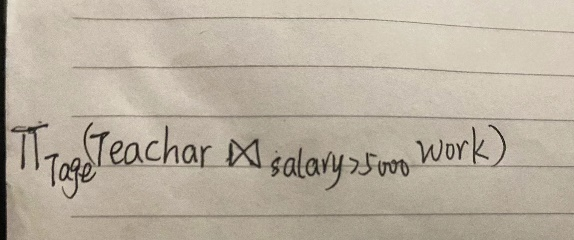 π Tage (Teachar ⋈ salary>5000 Work)